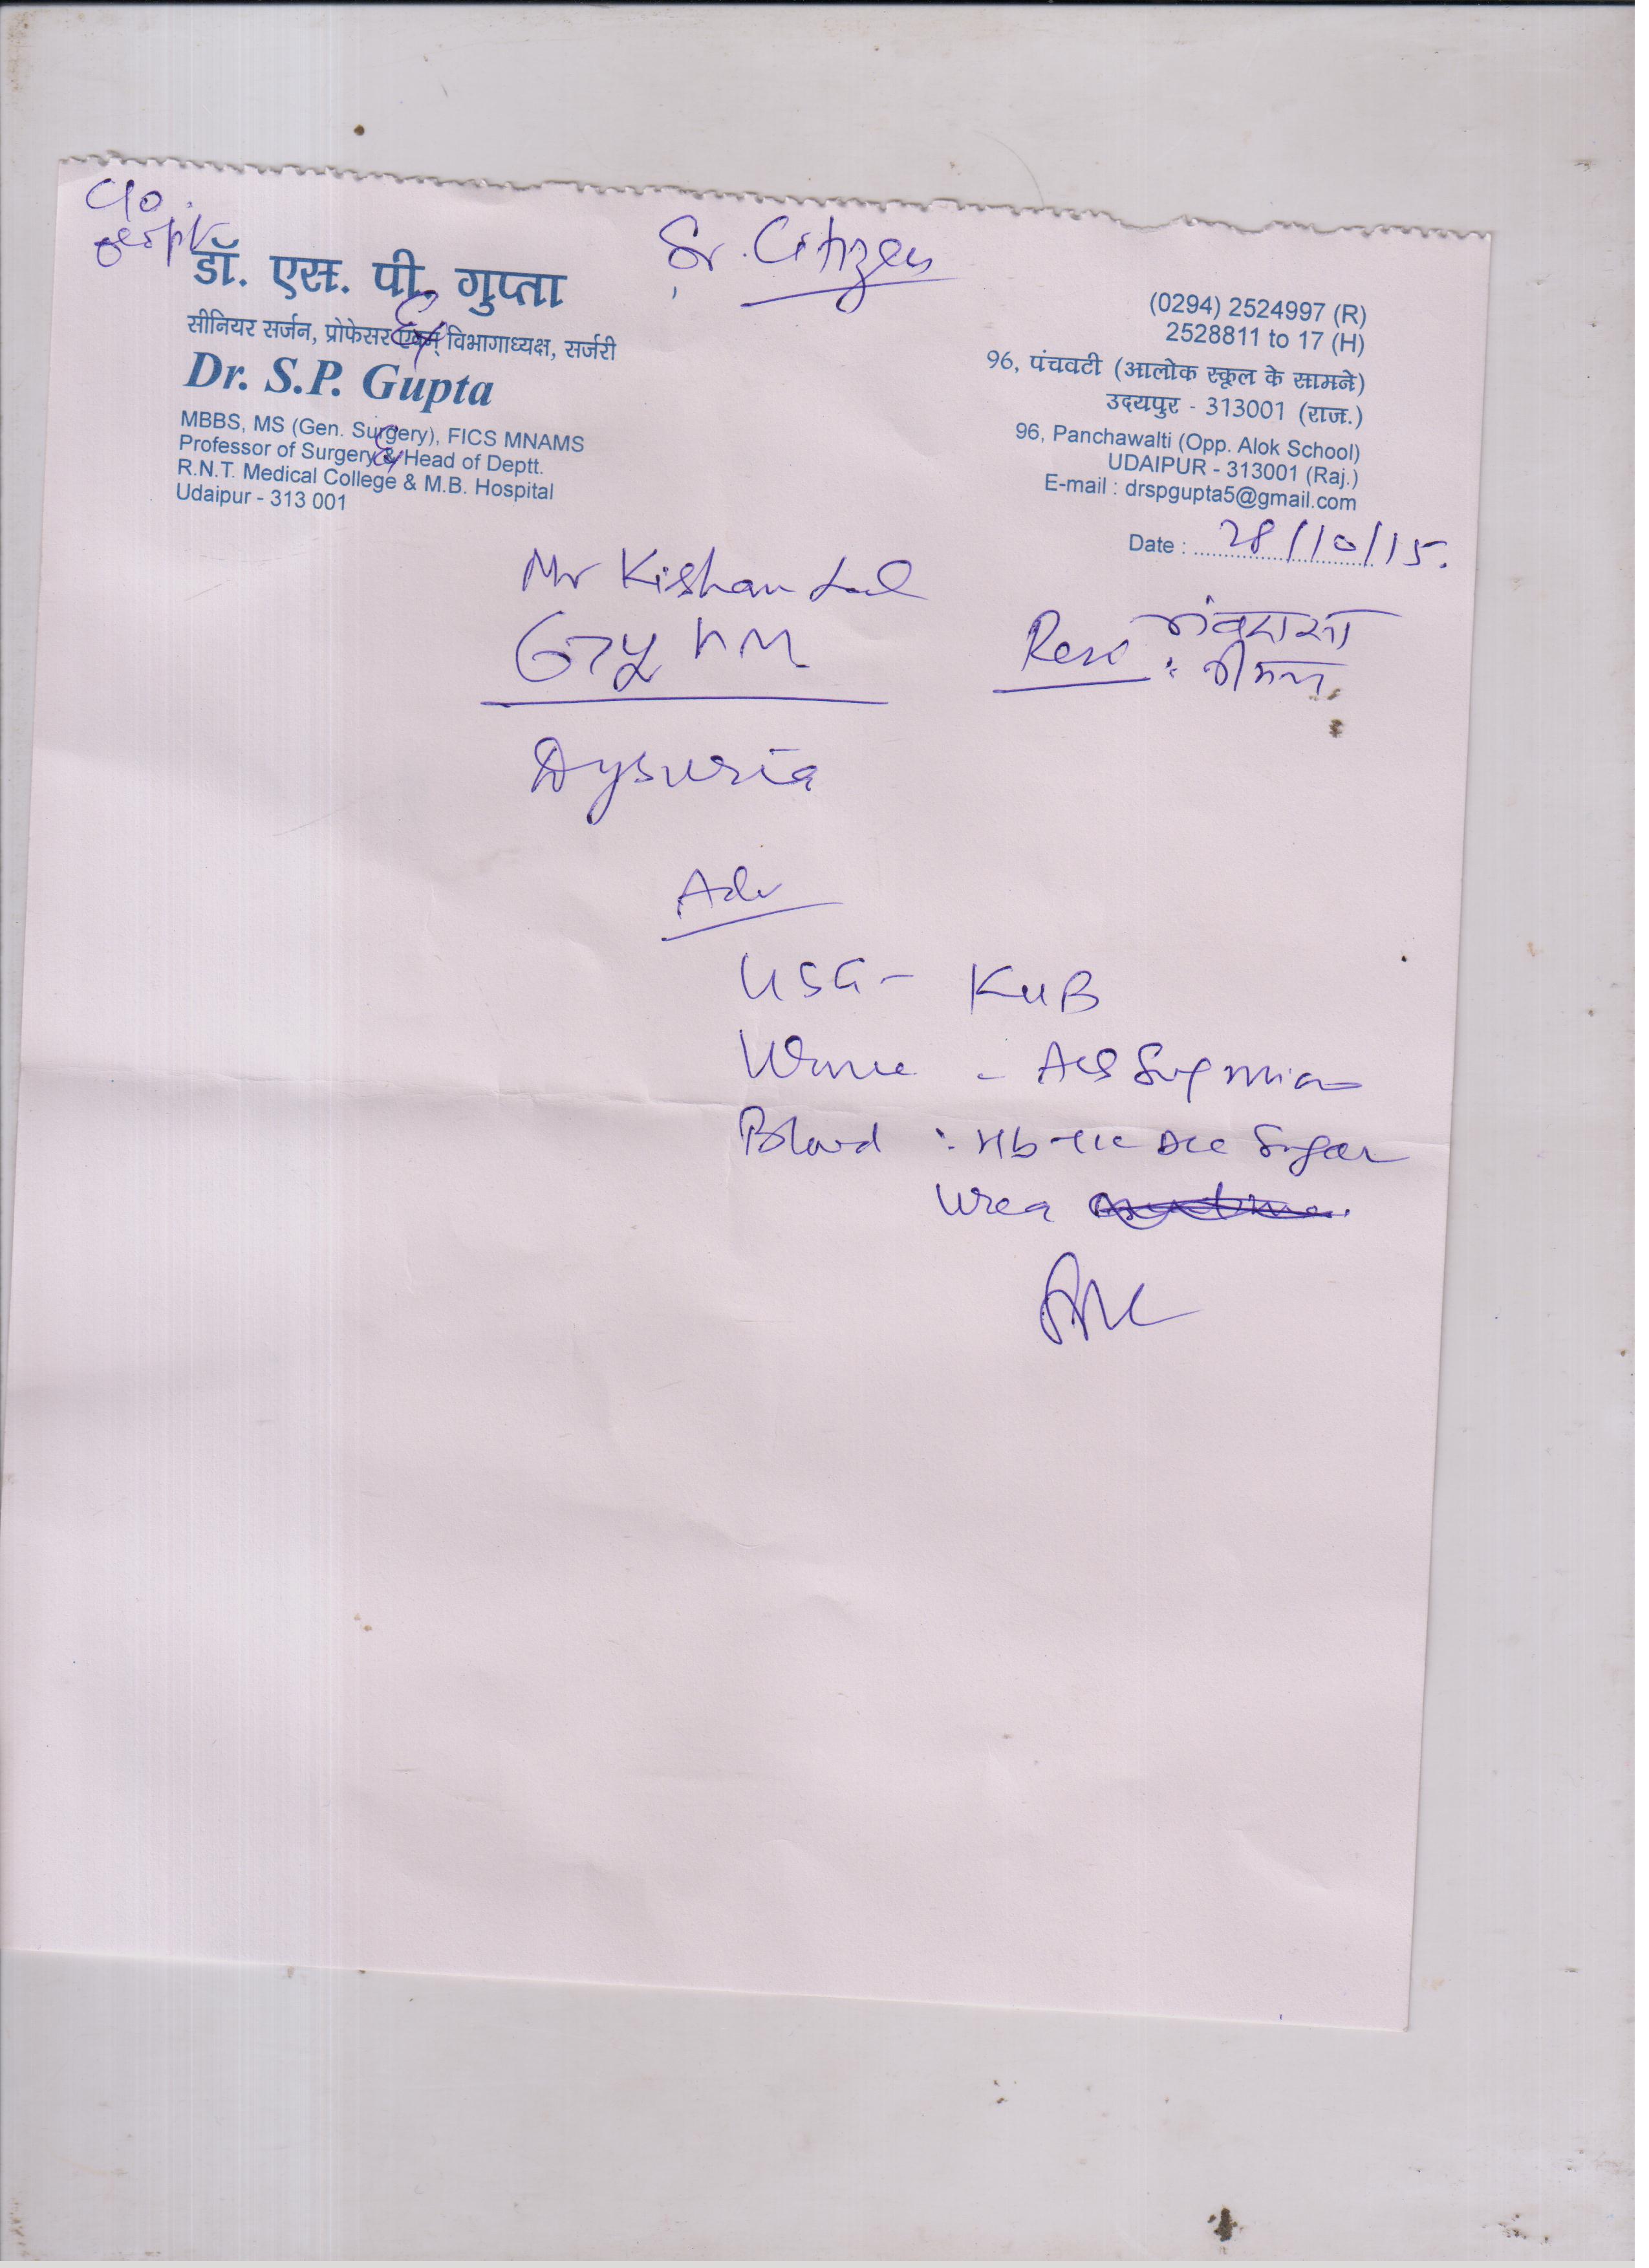 C/o.
Sr. Citizen
डॉ. एस. पी. गुप्ता
सीनियर सर्जन, प्रोफेसर एवम् विभागाध्यक्ष, सर्जरी
Dr. S.P. Gupta
MBBS, MS (Gen. Surgery), FICS MNAMS
Professor of Surgery & Head of Deptt.
R.N.T. Medical College & M.B. Hospital
Udaipur - 313 001
(0294) 2524997 (R)
2528811 to 17 (H)
96, पंचवटी (आलोक स्कूल के सामने)
उदयपुर - 313001 (राज.)
96, Panchawalti (Opp. Alok School)
UDAIPUR - 313001 (Raj.)
E-mail : drspgupta5@gmail.com
Date : 28/10/15.
Mr Kishan Lal
67y
Dysuria
Adv
USG - KUB
Urine - Alb Sug Micro
Blood : Hb TLC DLC Sugar
Urea